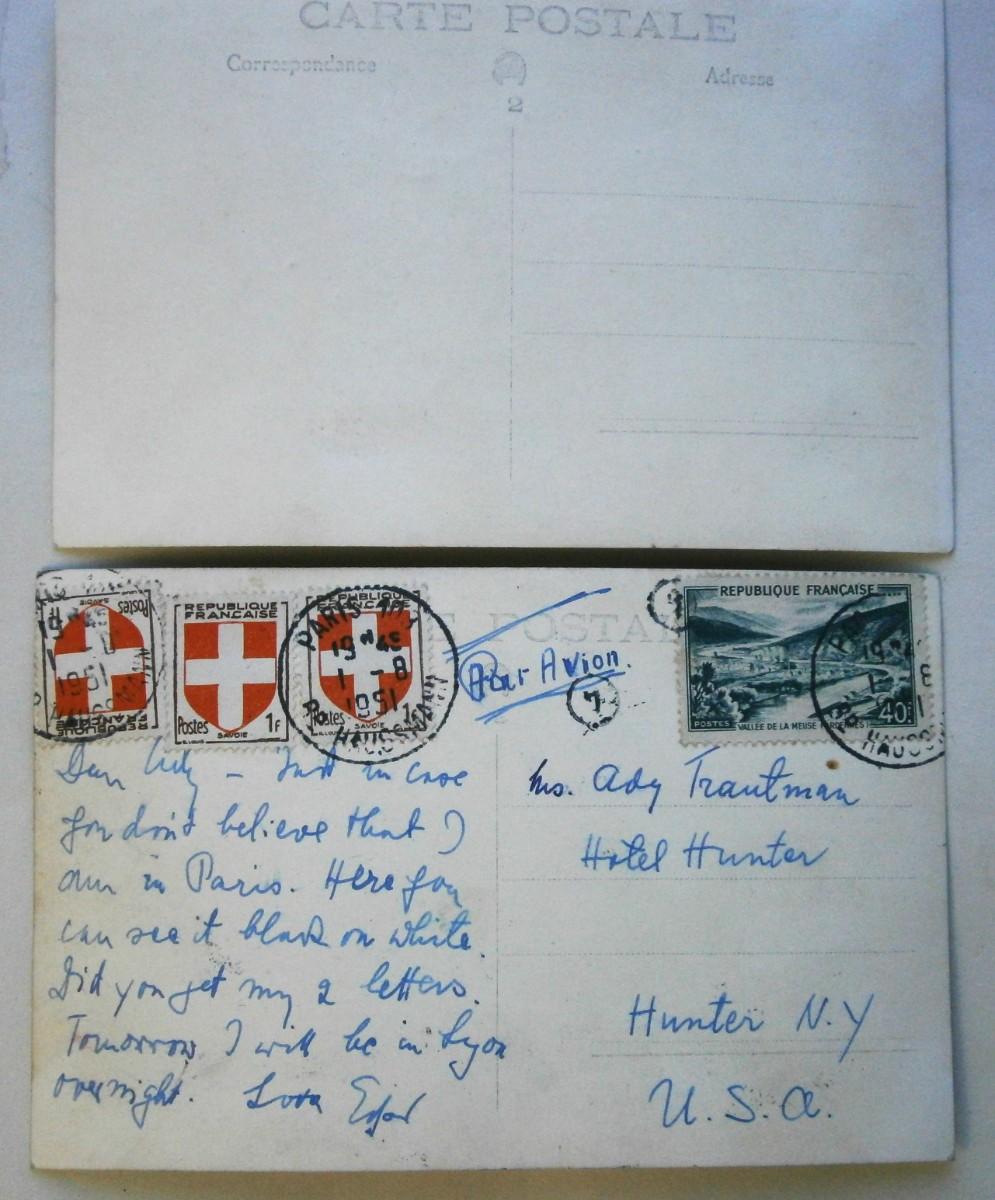 CARTE POSTALE
Correspondance
Adresse
2
Postes
SAVOIE
REPUBLIQUE
FRANCAISE
19 H 45
1951
REPUBLIQUE
FRANÇAISE
Postes 1F
SAVOIE
REPUBLIQUE
FRANÇAISE
Postes 1F
SAVOIE
PARIS
19 H 45
1 - 8
1951
HAUSSMANN
E POSTAL
Par Avion.
REPUBLIQUE FRANÇAISE
POSTES VALLÉE DE LA MEUSE (ARDENNES)
40F
HAUSS
Dear Ady – Just in case
you don't believe that I
am in Paris. Here you
can see it black on white.
Did you get my 2 letters.
Tomorrow I will be in Lyon
overnight. Love
Mrs. Ady Trautman
Hotel Hunter
Hunter N.Y
U.S.A.